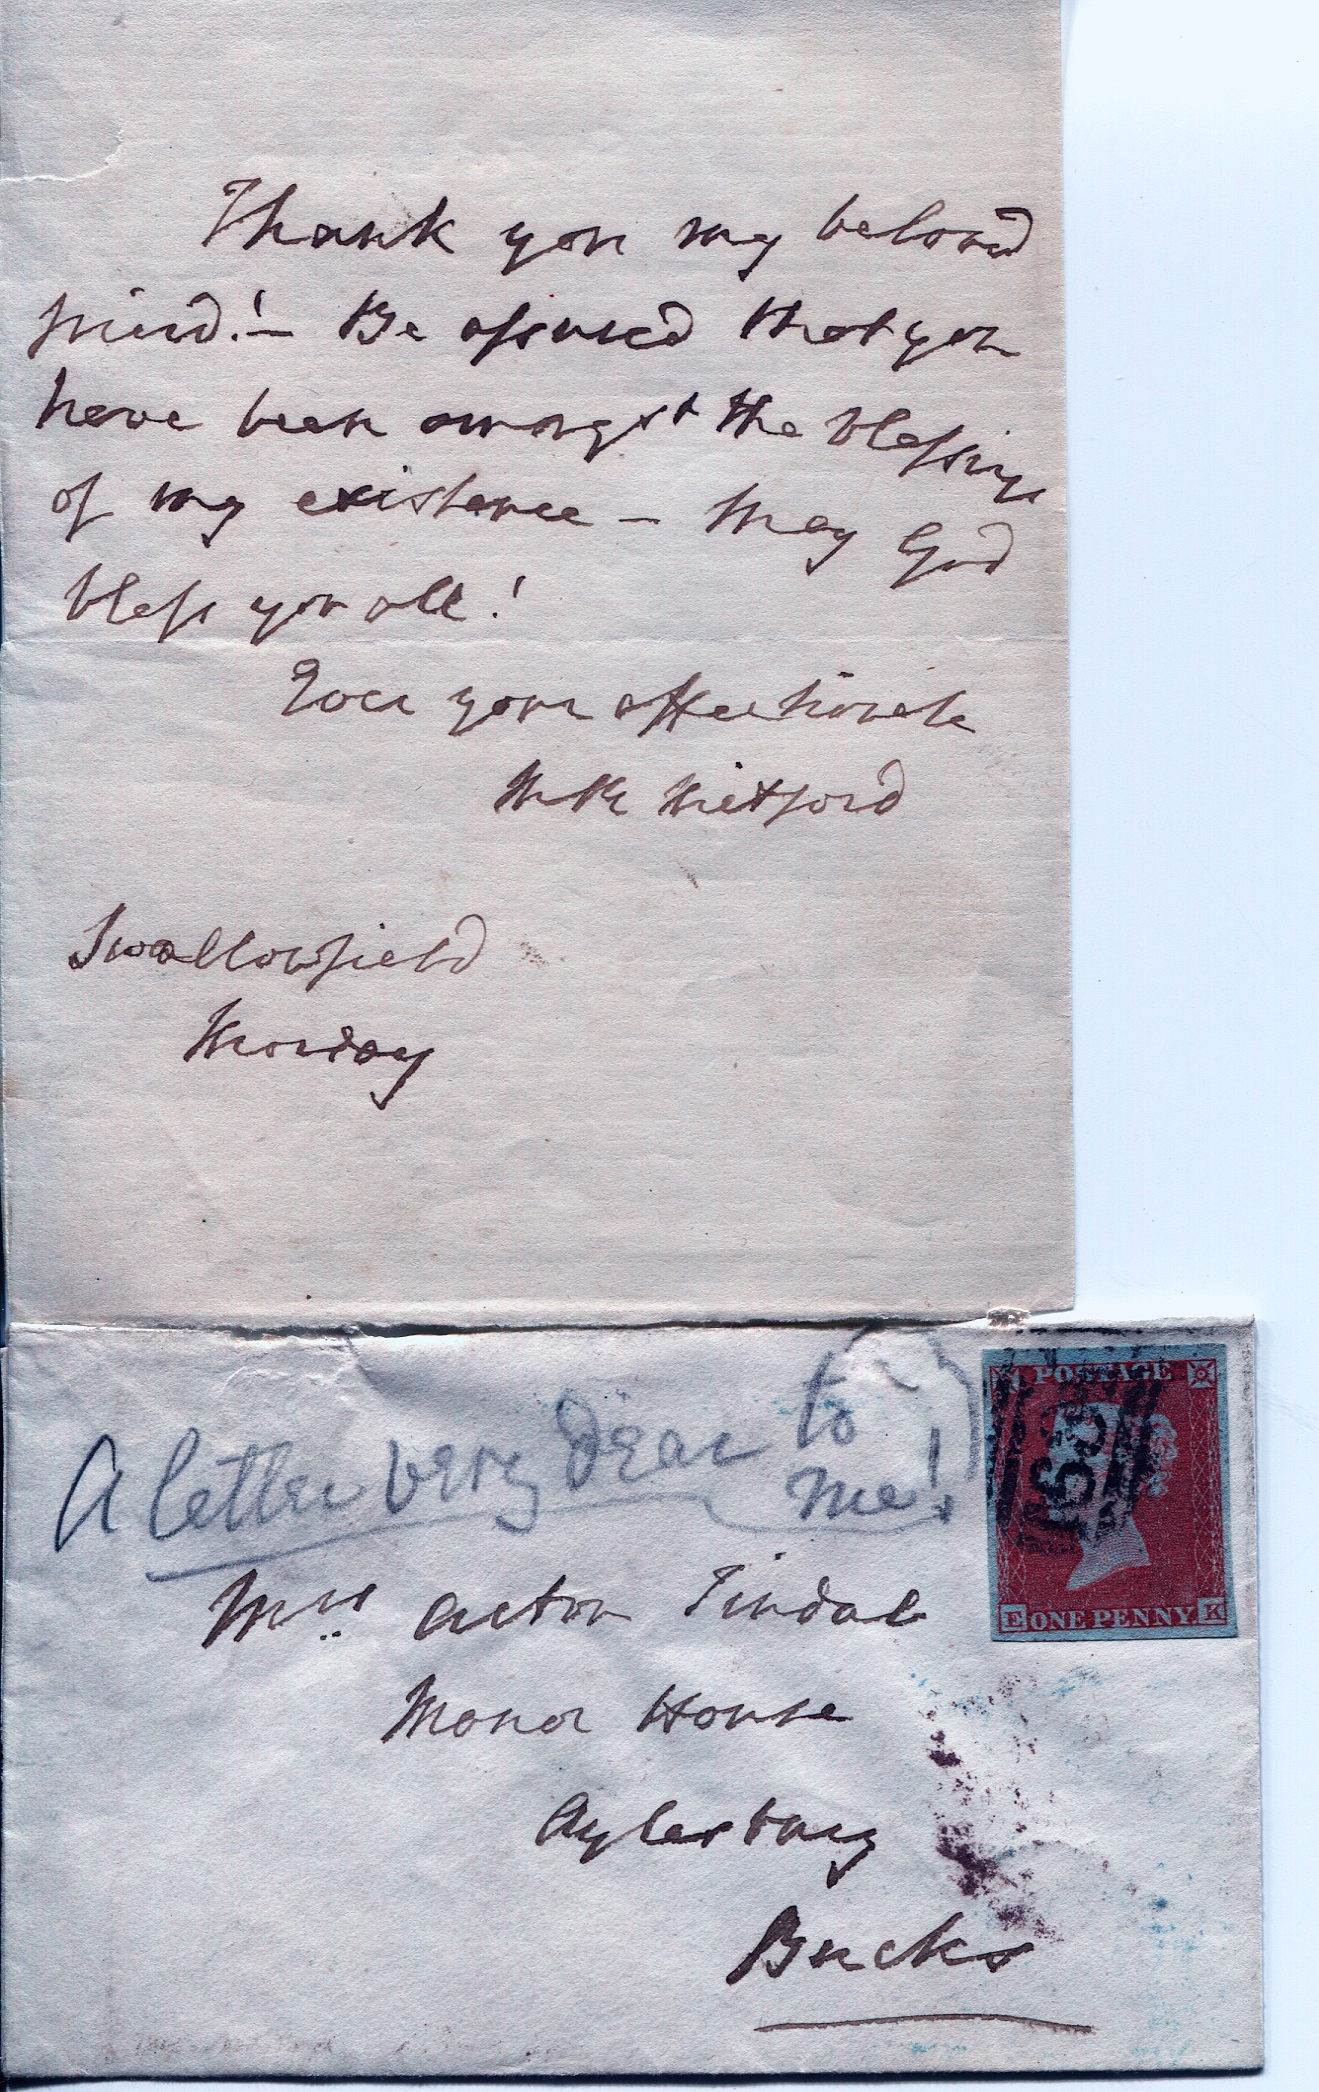 Thank you my beloved
friend! — Be assured that you
have been amongst the blessings
of my existence — May God
bless you all!
Ever yours affectionately
M R Mitford
Swallowfield
Monday
A letter very dear to
me!
POSTAGE
E ONE PENNY. K
Mrs Acton Tindal
Manor House
Aylesbury
Bucks